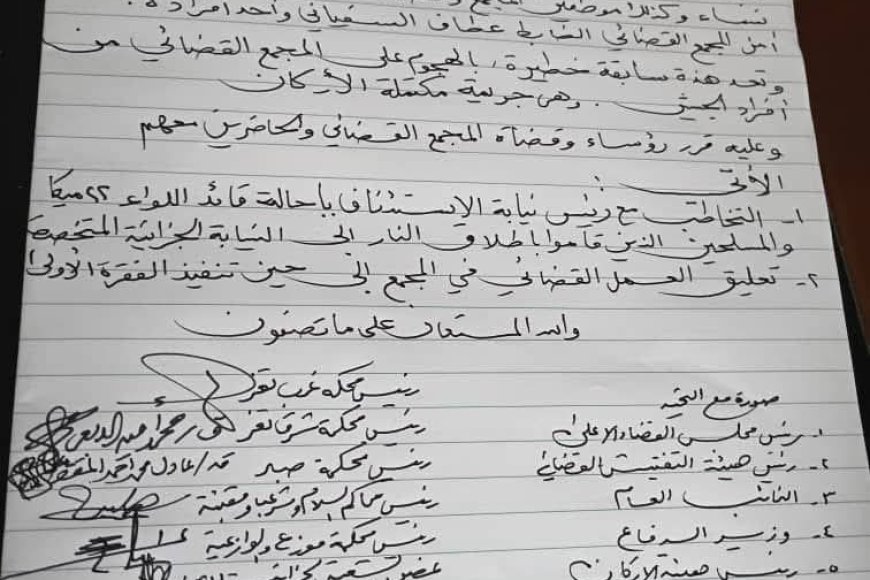 نساء وكذلك موظفين المجمع
أمن المجمع القضائي الضابط عطاف السفياني وأحد أفراده.
وتعد هذه سابقة خطيرة، بالهجوم على المجمع القضائي من
أفراد الجيش. وهي جريمة مكتملة الأركان
وعليه قرر رؤساء وقضاة المجمع القضائي والحاضرين معهم
الآتي :
١- التخاطب مع رئيس نيابة الاستئناف بإحالة قائد اللواء ٢٢ ميكا
والمسلحين الذين قاموا بإطلاق النار الى النيابة الجزائية المتخصصة
٢- تعليق العمل القضائي في المجمع إلى حين تنفيذ الفقرة الأولى
والله المستعان على ما تصفون
صورة مع التحية
١- رئيس مجلس القضاء الأعلى
٢- رئيس هيئة التفتيش القضائي
٣- النائب العام
٤- وزير الدفاع
٥- رئيس هيئة الأركان
رئيس محكمة غرب تعز
رئيس محكمة شرق تعز
رئيس محكمة صبر
رئيس محاكم السلام وشرعب ومقبنة
رئيس محكمة موزع والوازعية
عضو الشعبة الجزائية